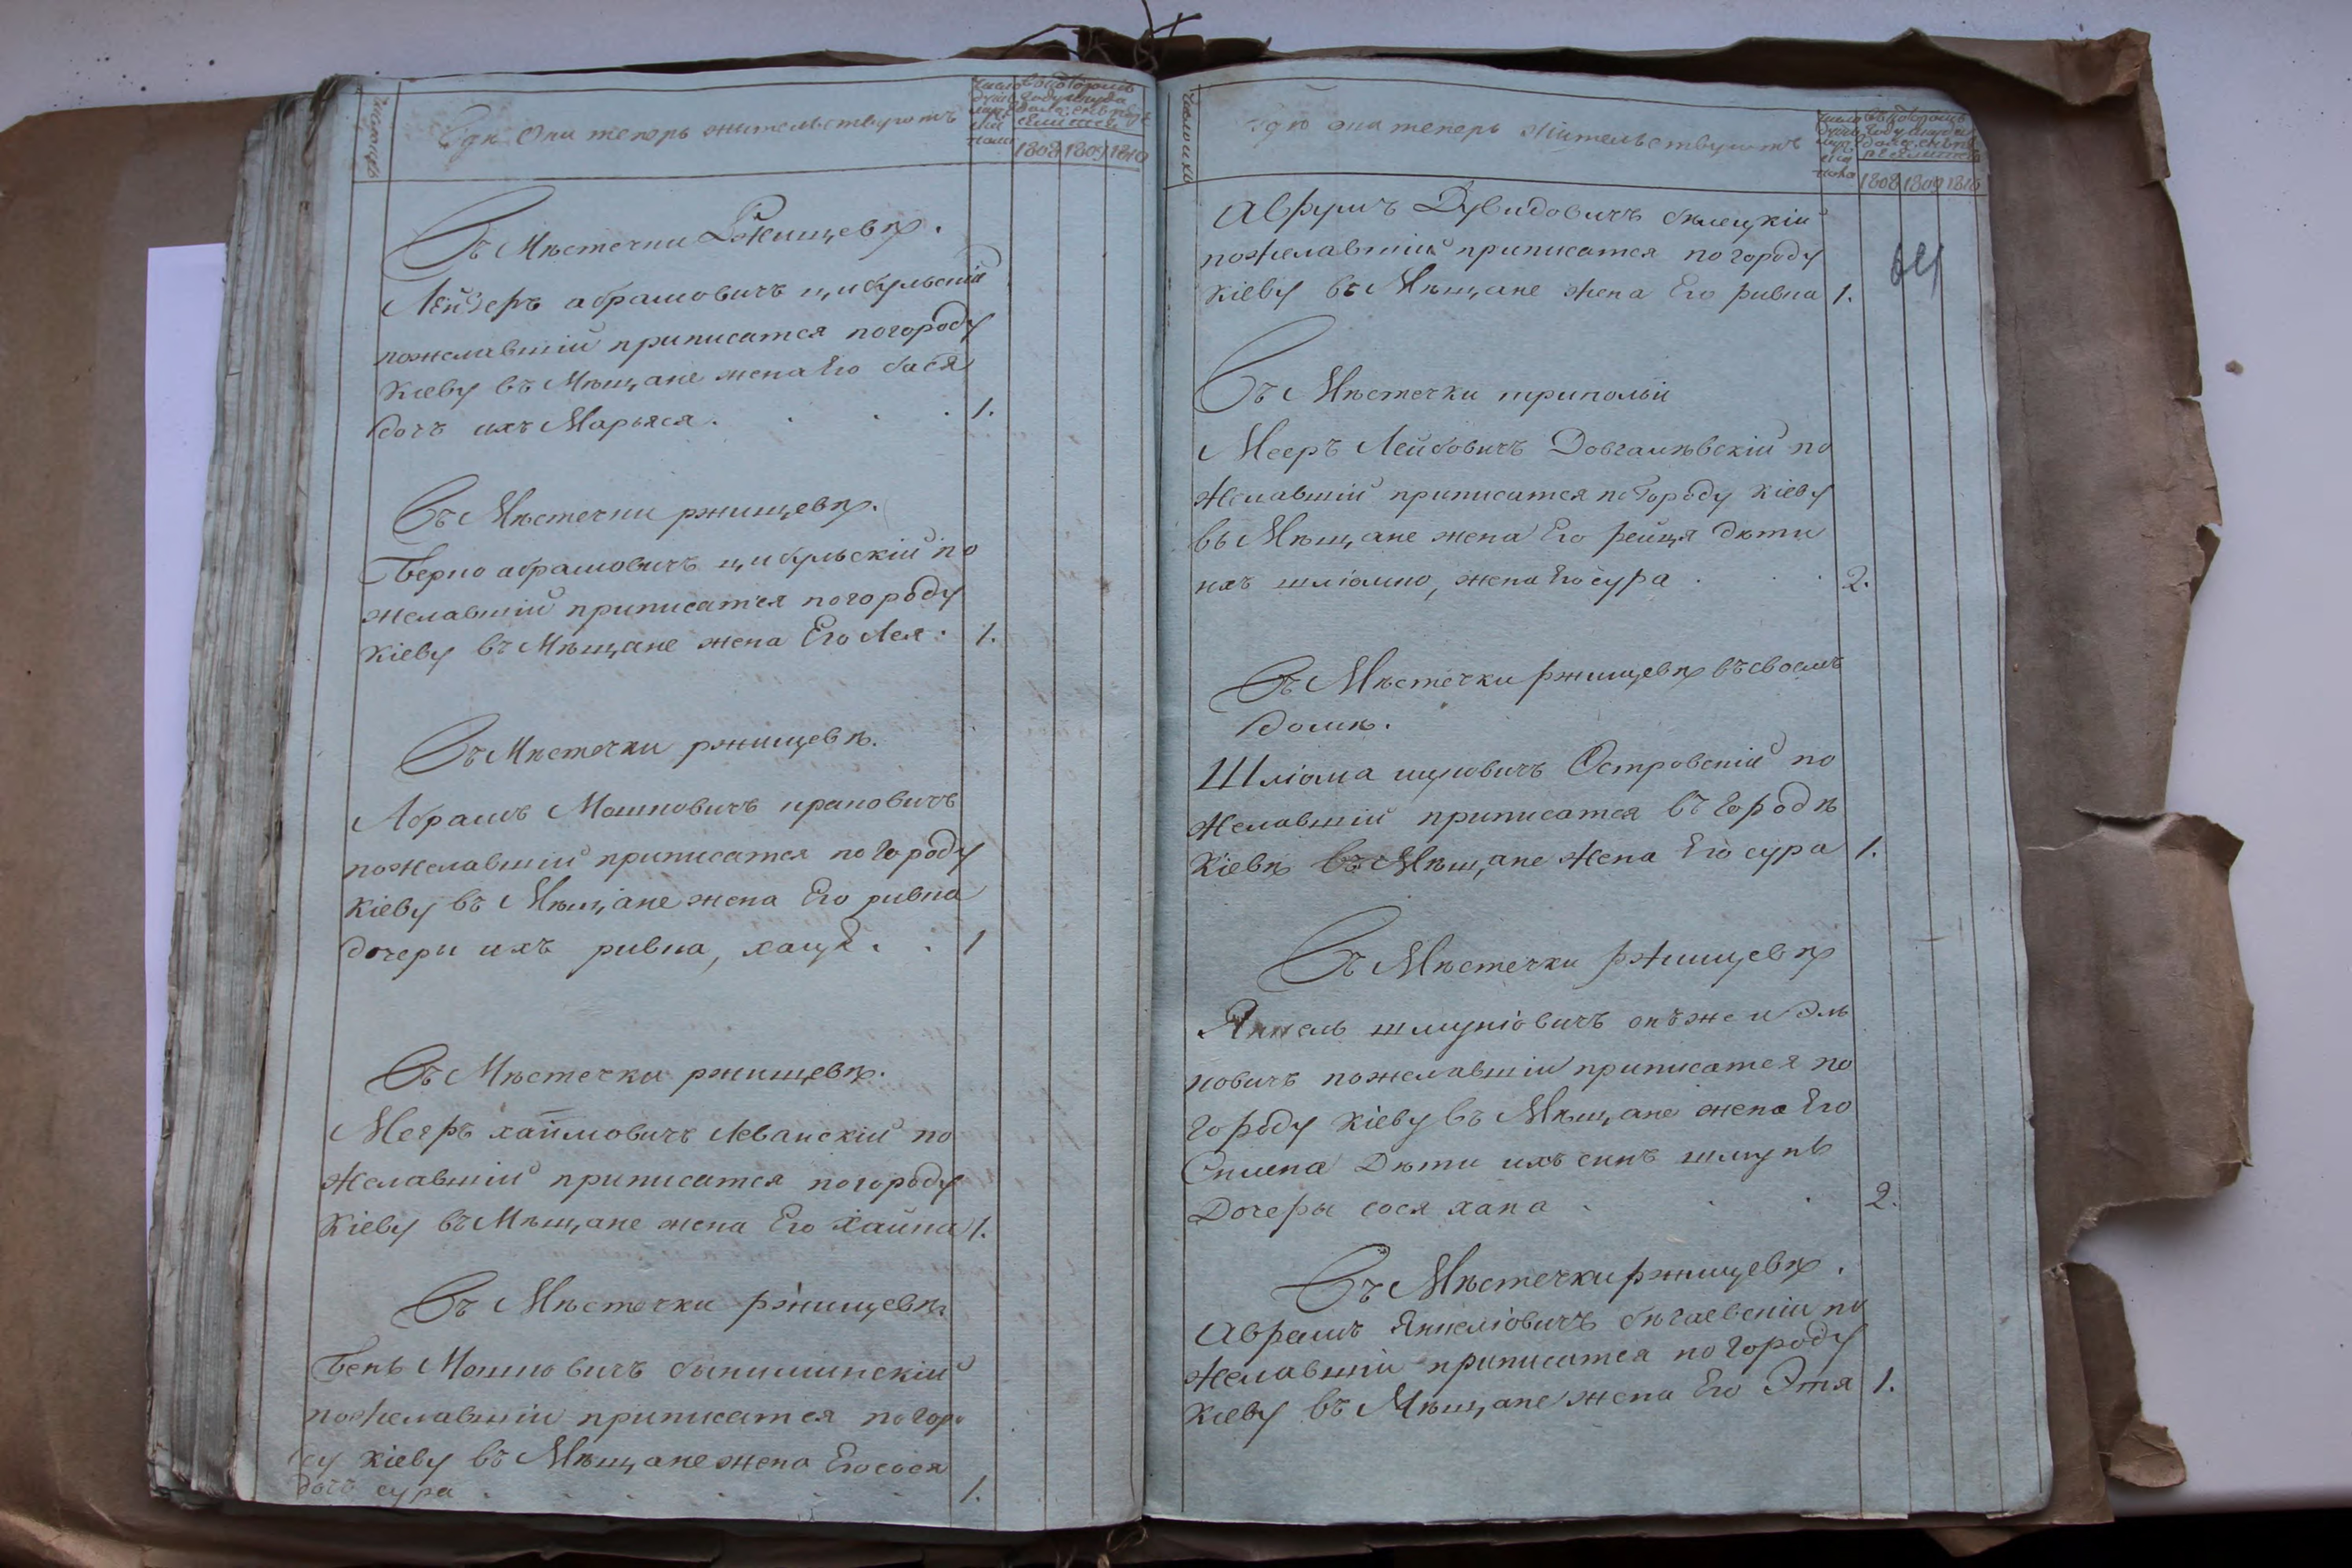 Гдѣ Они теперь жительствуютъ
1808 1809 1810
Въ Мѣстечки Ржищевѣ.
Лейзеръ абрамовичъ цибульскій
пожелавшій приписатся погороду
Кіеву въ Мѣщане жена Его бася
дочъ ихъ Марьяся. 1.
Въ Мѣстечки ржищевѣ.
Берко абрамовичъ цибульскій по
желавшій приписатся погороду
Кіеву въ Мѣщане жена Его Лея. 1.
Въ Мѣстечки ржищевѣ.
Абрамъ Мошковичъ
пожелавшій приписатся по городу
Кіеву въ Мѣщане жена Его ривка
дочери ихъ ривка, 1
Въ Мѣстечки ржищевѣ.
Мееръ хаймовичъ Леванскій по
желавшій приписатся погороду
Кіеву въ Мѣщане жена Его хайка 1.
Въ Мѣстечки ржищевѣ
Мошковичъ
пожелавшій приписатся погоро
ду Кіеву въ Мѣщане жена Его сося
дочъ сура 1.
Гдѣ они теперь жительствуютъ
1808 1809 1810
Дувидовичъ бѣлецкій
пожелавшій приписатся по городу
Кіеву въ Мѣщане жена Его ривка 1.
Въ Мѣстечки трипольи
Мееръ Лейбовичъ Довгалѣвскій по
желавшій приписатся по Городу Кіеву
въ Мѣщане жена Его рейця дѣти
ихъ шліомко, жена Его сура 2.
Въ Мѣстечки ржищевѣ въ своемъ
домѣ.
Шліома ицковичъ Островскій по
желавшій приписатся въ Городѣ
Кіевѣ въ Мѣщане жена Его сура 1.
Въ Мѣстечки ржищевѣ
Янкель онъ же и Эль
ковичъ пожелавшій приписатся по
Городу Кіеву въ Мѣщане жена Его
Дѣти ихъ синъ
Дочеры сося хана 2.
Въ Мѣстечки ржищевѣ.
Аврамъ Янкеліовичъ бѣгаевскій по
желавшій приписатся по Городу
Кіеву въ Мѣщане жена Его Этя 1.